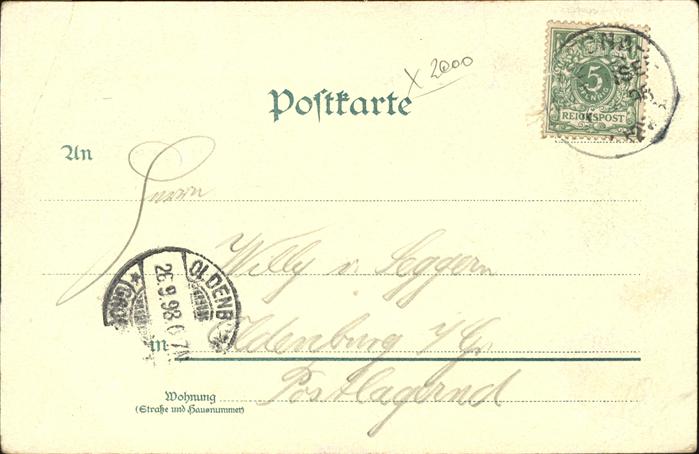 x 2000
Postkarte
5
PFENNIG
REICHSPOST
An
Herrn
Willy v. Seggern
in Oldenburg i/Gr.
Postlagernd
Wohnung
(Straße und Hausnummer)
OLDENB
26.9.98.6-7N